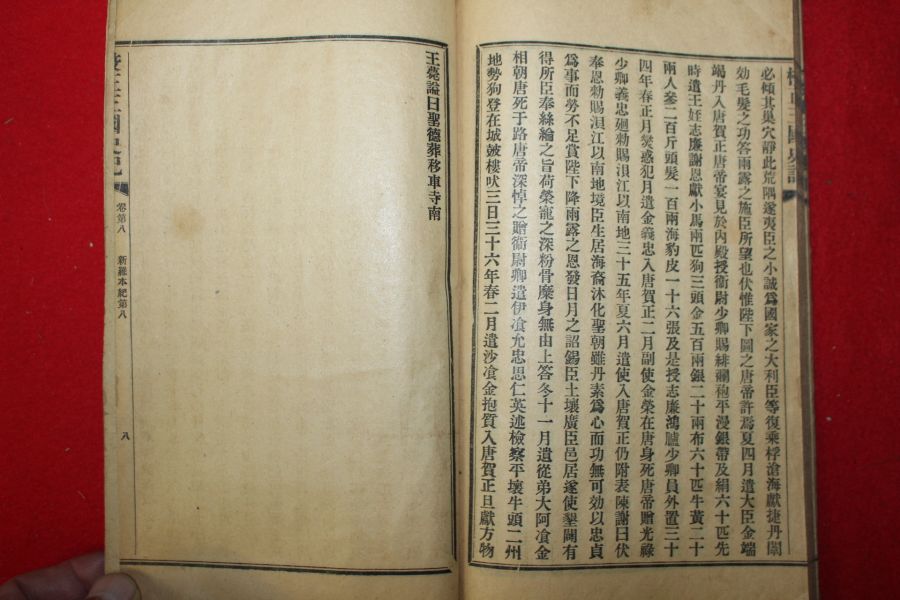 必傾其巢穴靜此荒隅遂夷臣之小誠爲國家之大利臣等復乘桴滄海獻捷丹闈
効毛髮之功答雨露之施臣所望也伏惟陛下圖之唐帝許焉夏四月遣大臣金端
竭丹入唐賀正唐帝宴見於內殿授衛尉少卿賜緋襴袍平漫銀帶及絹六十匹先
時遣王姪志廉謝恩獻小馬兩匹狗三頭金五百兩銀二十兩布六十匹牛黃二十
兩人蔘二百斤頭髮一百兩海豹皮一十六張及是授志廉鴻臚少卿員外置三十
四年春正月熒惑犯月遣金義忠入唐賀正二月副使金榮在唐身死唐帝贈光祿
少卿義忠廻勅賜浿江以南地三十五年夏六月遣使入唐賀正仍附表陳謝曰伏
奉恩勅賜浿江以南地境臣生居海裔沐化聖朝雖丹素爲心而功無可効以忠貞
爲事而勞不足賞陛下降雨露之恩發日月之詔錫臣土壤廣臣邑居遂使墾闢有
得所臣奉絲綸之旨荷榮寵之深粉骨糜身無由上答冬十一月遣從弟大阿飡金
相朝唐死于路唐帝深悼之贈衛尉卿遣伊飡允忠思仁英述檢察平壤牛頭二州
地勢狗登在城鼓樓吠三日三十六年春二月遣沙飡金抱質入唐賀正且獻方物
王薨謚曰聖德葬移車寺南
卷第八
新羅本紀第八
八